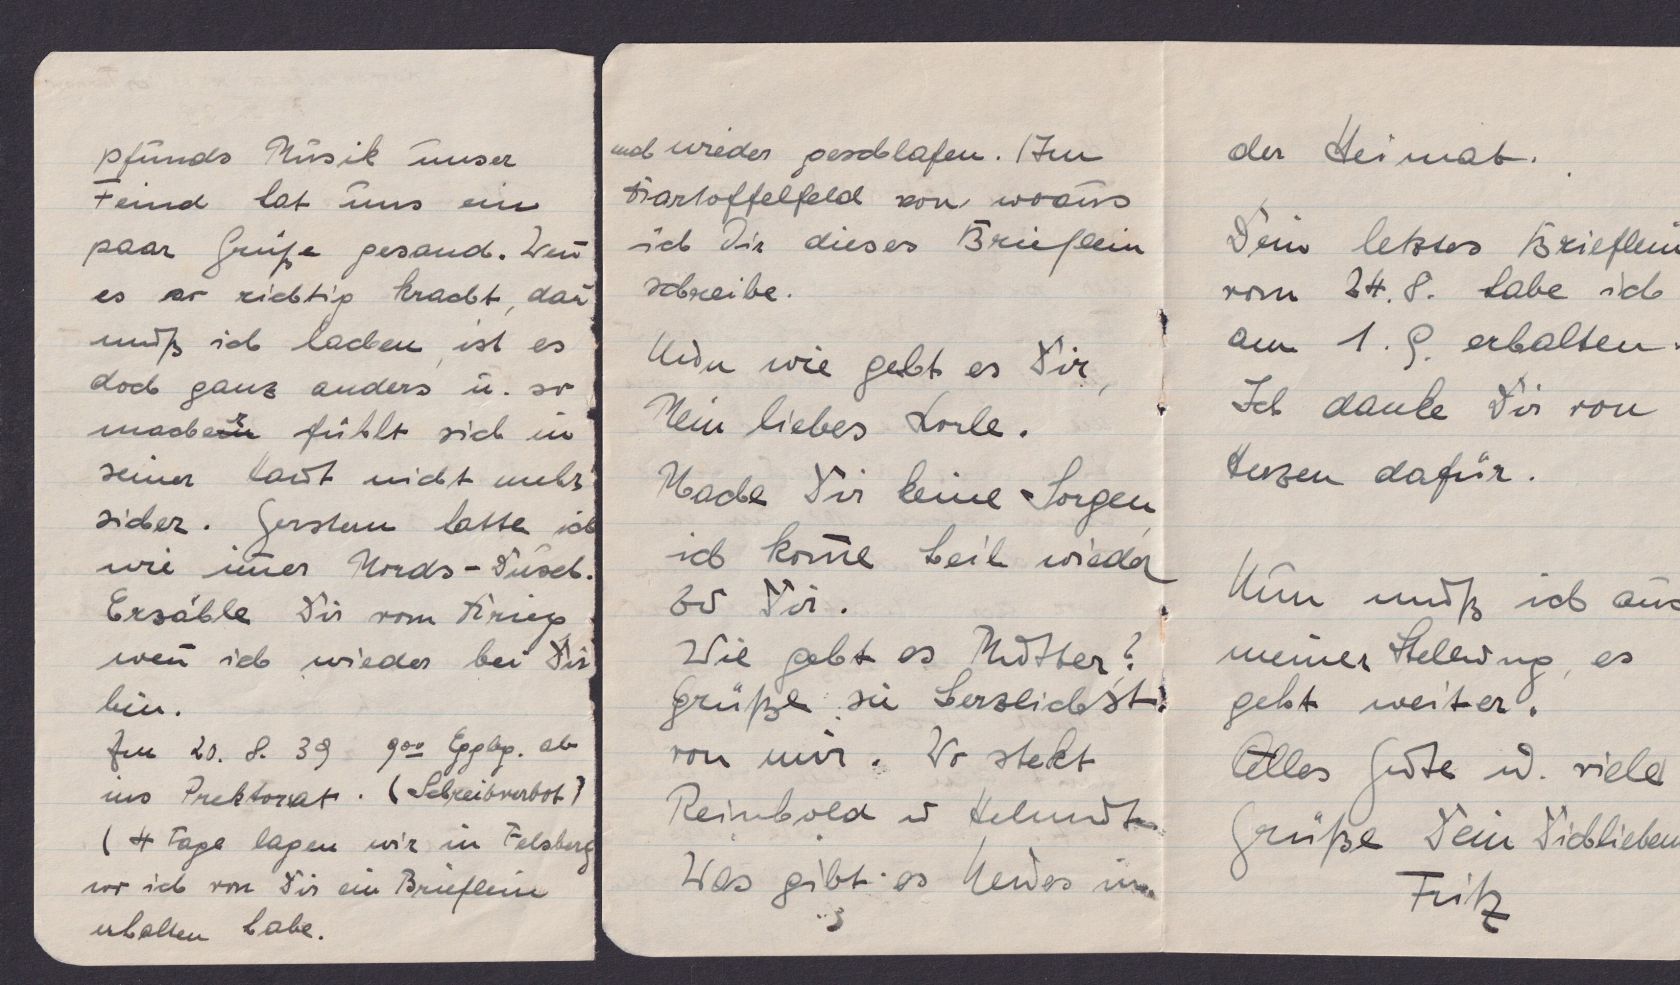 pfunds Müsik ünser
Feind hat üns ein
paar Grüße gesand. Weñ
es so richtig kracht, dañ
muß ich lachen, ist es
doch ganz anders ü. so
macher fühlt sich in
seiner Haut nicht mehr
sicher. Gerstern hatte ich
wie im̅er Mords-Düsel.
Erzähle Dir vom Krieg
weñ ich wieder bei Dir
bin.
20. 8. 39 9⁰⁰ ab
ins Prektorat. (Schreibverbot)
(4 Tage lagen wir in Felsberg
wo ich von Dir ein Brieflein
erhalten habe.
und wieder geschlafen. Im
Kartoffelfeld von woaüs
ich Dir dieses Brieflein
schreibe.
Nun wie geht es Dir,
Mein liebes Lorle.
Mache Dir keine Sorgen
ich kom̅e heil wieder
zu Dir.
Wie geht es Mutter?
Grüße sie herzlichst
von mir. Wo stekt
Reinhold u Helmut
Was gibt es Neues in
3
der Heimat.
Dein letztes Brieflein
vom 24. 8. habe ich
am 1. 9. erhalten.
Ich danke Dir von
Herzen dafür.
Nün muß ich aus
meiner Stellung, es
geht weiter.
Alles Gute u. viele
Grüße Dein Dichlieben
Fritz